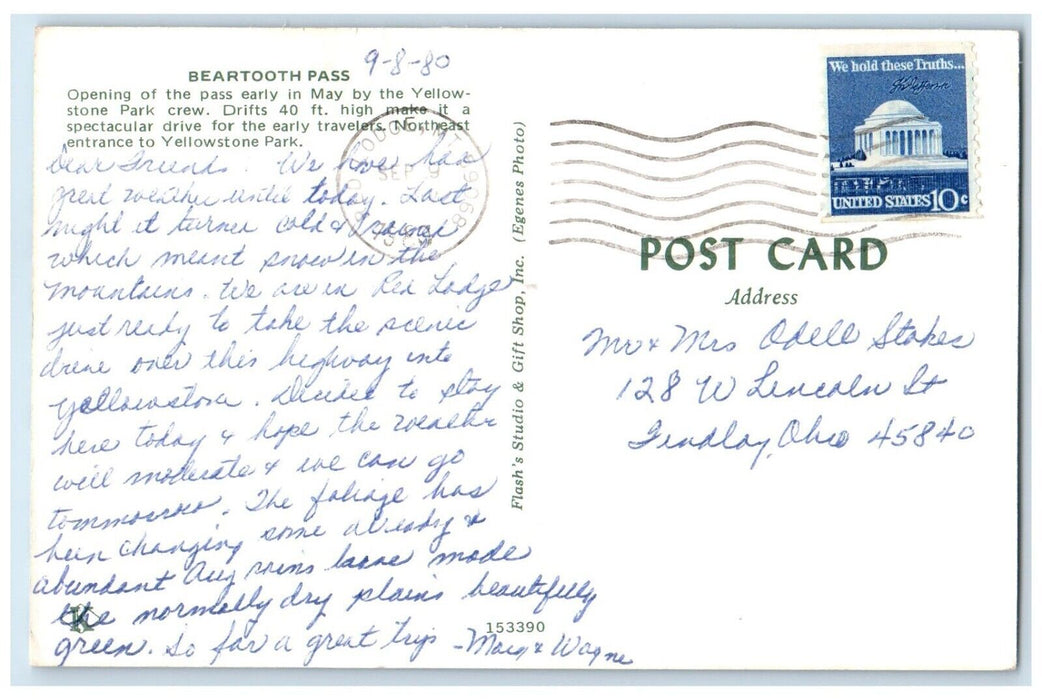 9-8-80
BEARTOOTH PASS
Opening of the pass early in May by the Yellow-
stone Park crew. Drifts 40 ft. high make it a
spectacular drive for the early travelers. Northeast
entrance to Yellowstone Park.
Dear Friends. We have had
great weather until today. Last
night it turned cold & rained
which meant snow in the
mountains. We are in Red Lodge
just ready to take the scenic
drive over this highway into
Yellowstone. Decided to stay
here today & hope the weather
will moderate & we can go
tommorrow. The foliage has
been changing some already &
abundant Aug rains have made
the normally dry plains beautifully
green. So far a great trip - Marg & Wayne
K
153390
Flash's Studio & Gift Shop, Inc. (Egenes Photo)
SEP 9
We hold these Truths...
Th Jefferson
UNITED STATES 10c
POST CARD
Address
Mr & Mrs Odell Stokes
128 W Lincoln St
Findlay, Ohio 45840